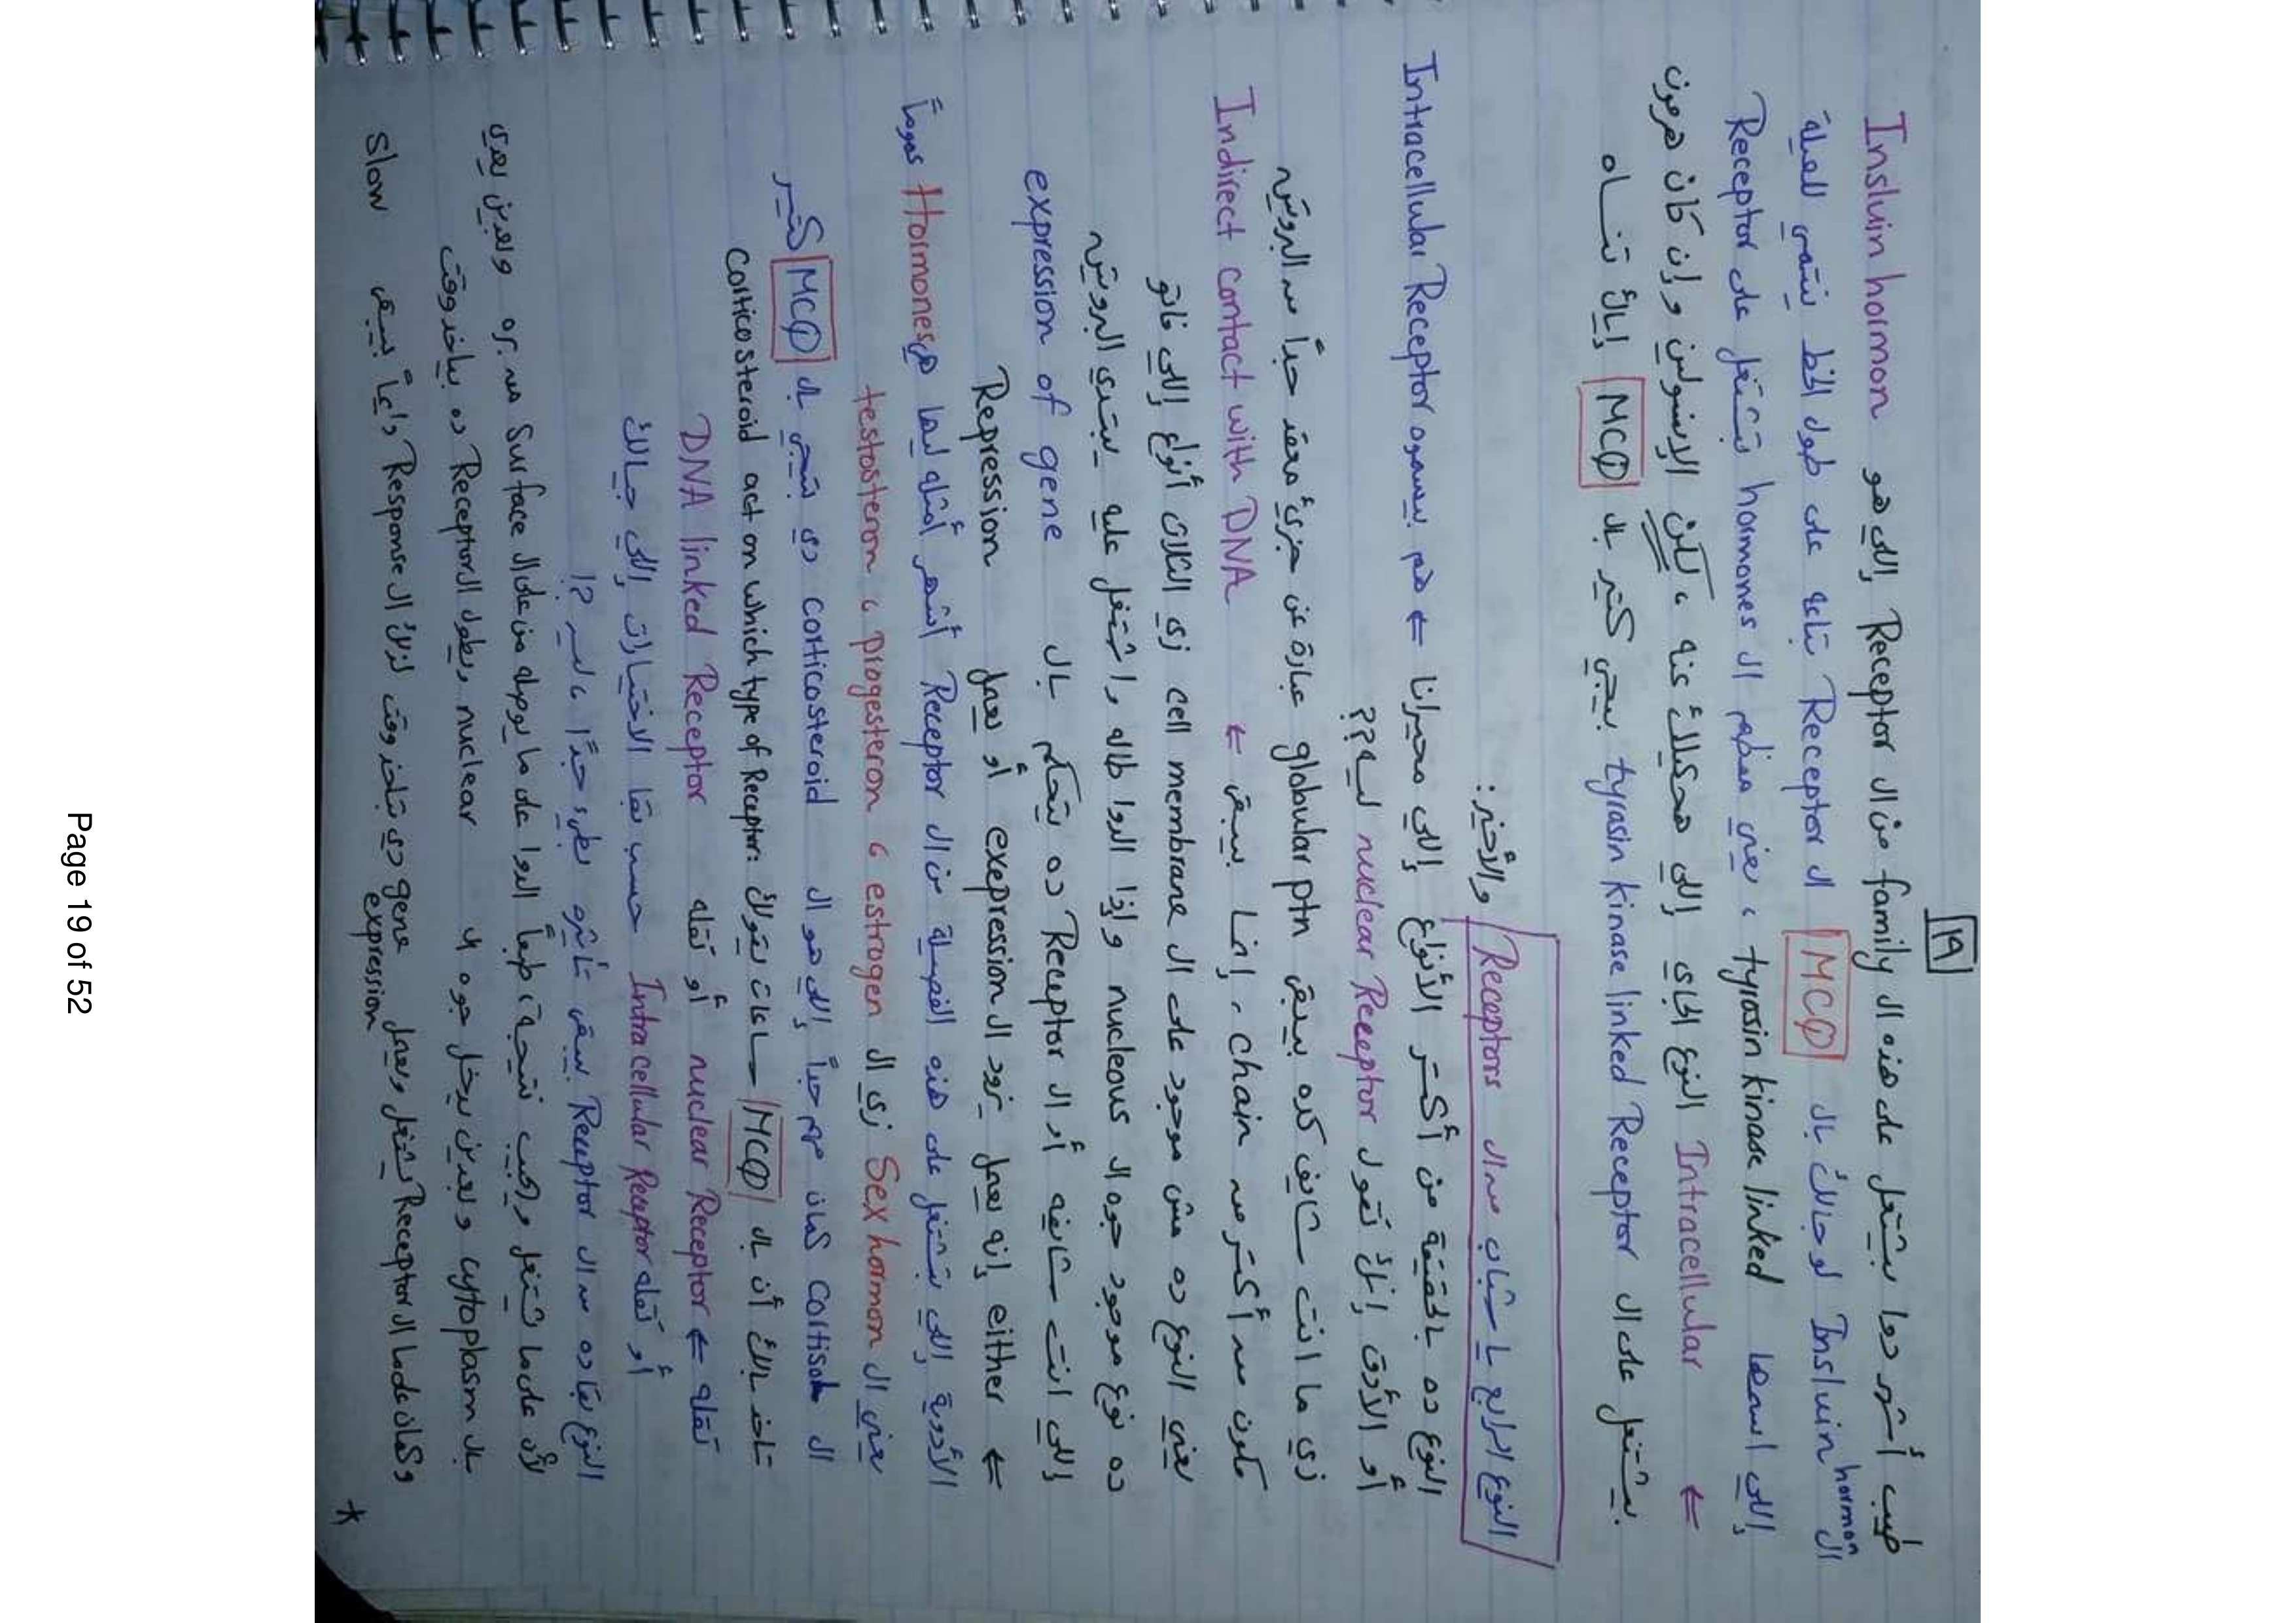 ١٩
طيب أشهر دوا بيشتغل على هذه ال family من ال Receptor إللي هو Insluin hormon
ال Insluin hormon لو جالك بال MCQ ال Receptor بتاعة على طول الخط بتنتمي للعيلة
إللي اسمها tyrosin kinase linked ، يعني معظم ال hormones بتشتغل على Receptor
← Intracellular النوع الجاي إللي هحكيلك عنه ، لكن الإنسولين وإن كان هرمون
بيشتغل على ال tyrosin kinase linked Receptor بييجي كتير بال MCQ إياك تنساه
النوع الرابع يا شباب من ال Receptors والأخير :
النوع ده بالحقيقة من أكتر الأنواع إللي محيرانا ← هم بيسموه Intracellular Receptor
أو الأدق إنك تقول nuclear Receeptor ليه ؟؟
زي ما انت شايف كده بيبقى globular ptn عبارة عن جزئ معقد جداً من البروتين
مكون من أكتر من chain ، إنما بيبقى ← Indirect contact with DNA
يعني النوع ده مش موجود على ال cell membrane زي التلات أنواع إللي فاتو
ده نوع موجود جوه ال nucleous وإذا الدوا طاله واشتغل عليه بيبتدي البروتين
إللي انت شايفه أو ال Receptor ده يتحكم بال expression of gene
← either إنه يعمل تزود ال exepression أو يعمل Repression
الأدوية إللي بتشتغل على هذه الفصيلة من ال Receptor أشهر أمثلة ليها هي Hormones عموماً
يعني ال Sex hormon زي ال testosteron ، progesteron ، estrogen
ال cortisol كمان مهم جداً إللي هو ال corticosteroid دي بتيجي بال MCQ كتير
تاخد بالك أن بال MCQ ساعات يقولك : corticosteroid act on which type of Receptor
تقله ← nuclear Receptor أو تقله DNA linked Receptor
أو تقله Intracellular Receptor حسب بقا الاختيارات إللي جيالك
النوع بقا ده من ال Receptor بيبقى تأثيره بطيء جداً ، ليه ؟!
لأن على ما يشتغل ويجيب نتيجة ، طبعاً الدوا على ما يوصله من على ال Surface من بره وبعدين يعدي
بال cytoplasm وبعدين يدخل جوه ال nuclear ويطول ال Receptor ده بياخد وقت
* وكمان على ما ال Receptor يشتغل ويعمل gene expression دي بتاخد وقت لذلك ال Response دايماً بيبقى slow
Page 19 of 52